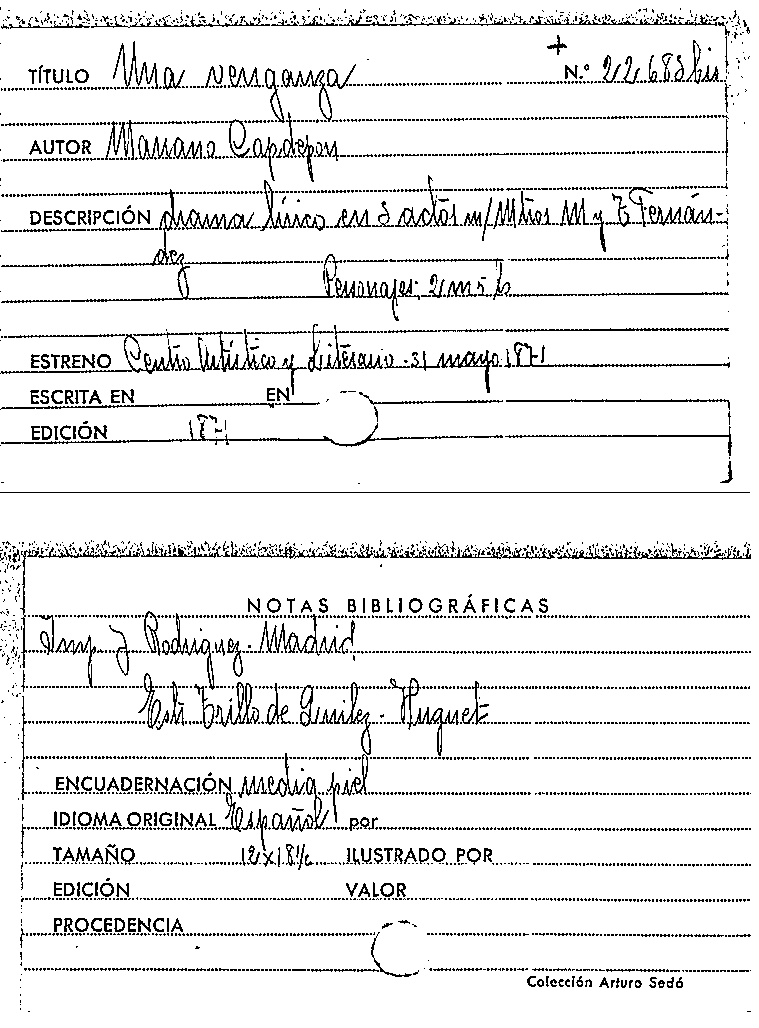 TÍTULO Una venganza + N.º 22.683 bis
AUTOR Mariano Capdepon
DESCRIPCIÓN drama lírico en 3 actos m/ Mtros M y T Fernán-
dez
Personajes: 2 m 5 h
ESTRENO Centro Artístico y Literario - 31 mayo 1871
ESCRITA EN EN
EDICIÓN 1871
NOTAS BIBLIOGRÁFICAS
Imp J Rodriguez - Madrid
Estr Trillo de Huguet
ENCUADERNACIÓN media piel
IDIOMA ORIGINAL Español por
TAMAÑO 12x18½ ILUSTRADO POR
EDICIÓN VALOR
PROCEDENCIA
Colección Arturo Sedó